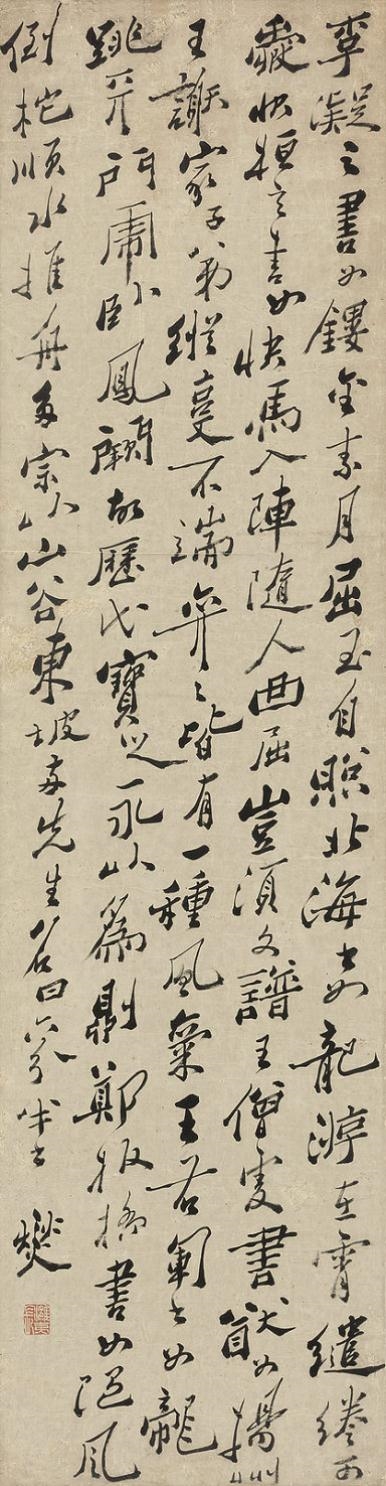 李凝之書如鏤金素月屈玉自照北海書如龍游在霄繾綣可
愛桓玄書如快馬入陣隨人曲屈豈須文譜王僧虔書猷如揚州
王謝家子弟縱憂不端奕々皆有一種風氣王右軍書如龍
跳天門虎臥鳳闕故歷代寶之永以為訓鄭板橋書如風
倒柁順水推舟多宗以山谷東坡兩先生名曰六分半書 燮